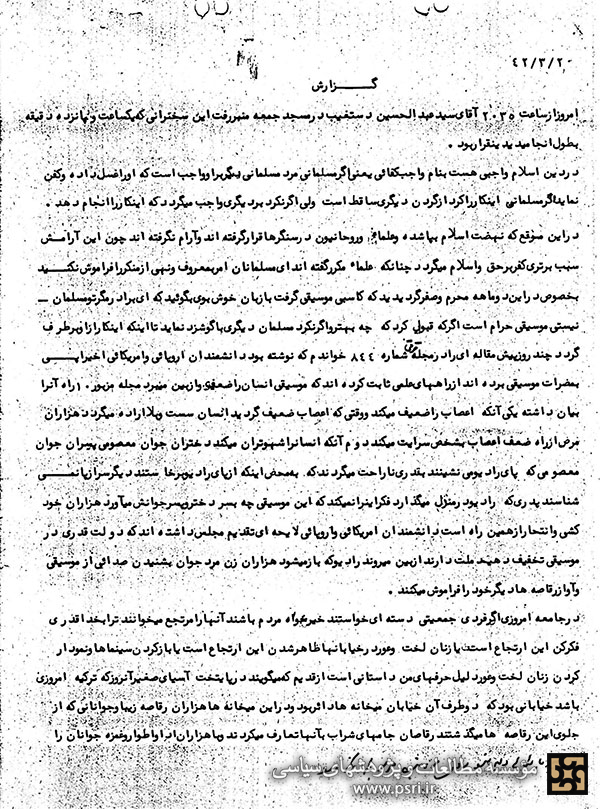 ۴۲/۳/۲۰
گـــزارش
امروز از ساعت ۲۰۳۵ آقای سید عبدالحسین دستغیب در مسجد جمعه منبر رفت این سخنرانی که یکساعت و پانزده دقیقه
بطول انجامید بدینقرار بود .
در دین اسلام واجبی هست بنام واجب کفائی یعنی اگر مسلمانی مرد مسلمانی دیگر بر او واجب است که او را غسل داده وکفن
نماید اگر مسلمانی اینکار را کرد از گردن دیگری ساقط است ولی اگر نکرد بر دیگری واجب میگردد که اینکار را انجام دهد .
در این موقع که نهضت اسلام بپا شده و علماء وروحانیون در سنگرها قرار گرفته اند و آرام نگرفته اند چون این آرامش
سبب برتری کفر بر حق واسلام میگردد چنانکه علماء مکرر گفته اند ای مسلمانان امر بمعروف ونهی از منکر را فراموش نکنید
بخصوص در این دو ماهه محرم وصفر گردیدید که کاسبی موسیقی گرفت با زبان خوش بوی بگوئید که ای برادر مگر تو مسلمان
نیستی موسیقی حرام است اگر که قبول کرد که چه بهتر واگر نکرد مسلمان دیگری باو گوشزد نماید تا اینکه اینکار را از او برطرف
گردد چند روز پیش مقاله ای را در مجله شماره ۸۴۴ خواندم که نوشته بود دانشمندان اروپائی وامریکائی اخیرا پی
بمضرات موسیقی برده اند از راههای علمی ثابت کرده اند که موسیقی انسان را ضعیف و از بین میبرد مجله مزبور ۱۰ راه آنرا
بیان داشته یکی آنکه اعصاب را ضعیف میکند ووقتی که اعصاب ضعیف گردید انسان سست وبلااراده میگردد هزاران
مرض از راه ضعف اعصاب بشخص سرایت میکند دوم آنکه انسانرا شهوتران میکند دختران جوان معصوم پسران جوان
معصومی که پای رادیو می نشینند بقدری ناراحت میگردند که بمحض اینکه از پای رادیو برخاستند دیگر سر از پا نمی
شناسند پدری که رادیو در منزل میگذارد فکر اینرا نمیکند که این موسیقی چه بسر دختر وپسر جوانش میآورد هزاران خود
کشی وانتحار از همین راه است دانشمندان امریکائی واروپائی لایحه ای تقدیم مجلس داشته اند که دولت قدری در
موسیقی تخفیف دهید ملت دارند از بین میروند رادیو که باز میشود هزاران زن مرد جوان بشنیدن صدائی از موسیقی
وآواز رقاصه ها دیگر خود را فراموش میکنند .
در جامعه امروزی اگر فردی جمعیتی دسته ای خواستند خیرخواه مردم باشند آنها را مرتجع میخوانند ترا بخدا قدری
فکر کن این ارتجاع است یا زنان لخت وعور در خیابانها ظاهر شدن این ارتجاع است یا باز کردن سینماها ونمودار
کردن زنان لخت وعور دلیل حرفهای من داستانی است از قدیم که میگویند در پایتخت آسیای صغیر آنروز که ترکیه امروزی
باشد خیابانی بود که دو طرف آن خیابان میخانه ها دائر بود ودر این میخانه ها هزاران رقاصه زیبا وجوانانی که از
جلوی این رقاصه ها میگذشتند رقاصان جامهای شراب بآنها تعارف میکردند وبا هزاران ادا واطوار وغمزه جوانان را
مؤسسه مطالعات و پژوهشهای سیاسی
www.psri.ir